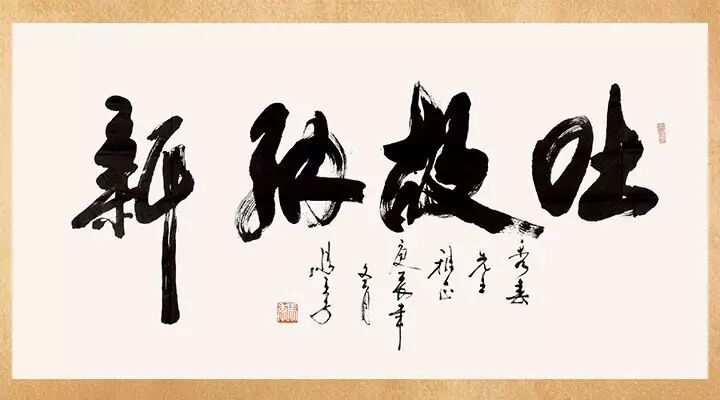 吐故纳新
秀春
先生
雅正
庚辰年
冬月